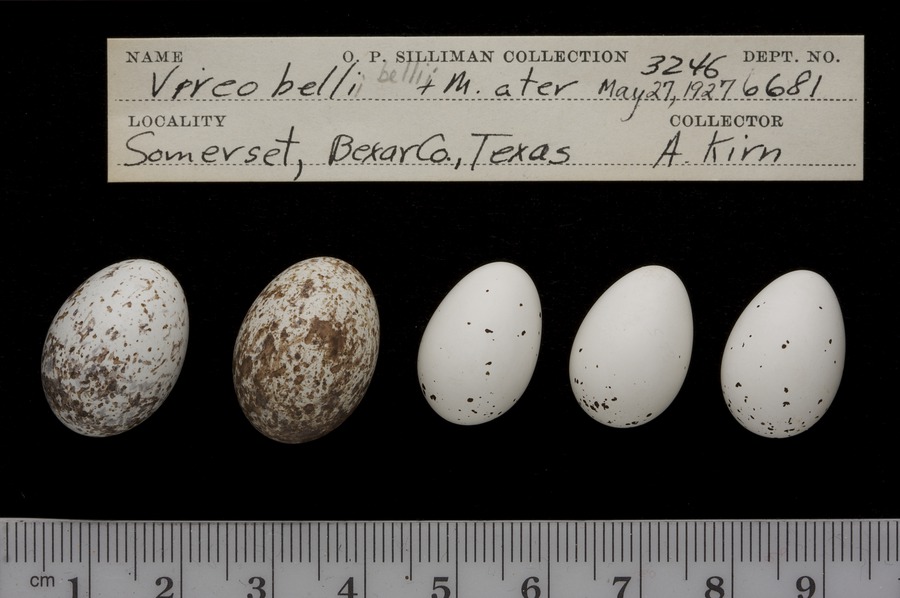 NAME O. P. SILLIMAN COLLECTION 3246 DEPT. NO.
Vireo bellii bellii + M. ater May 27, 1927 6681
LOCALITY COLLECTOR
Somerset, Bexar Co., Texas A. Kirn
cm 1 2 3 4 5 6 7 8 9